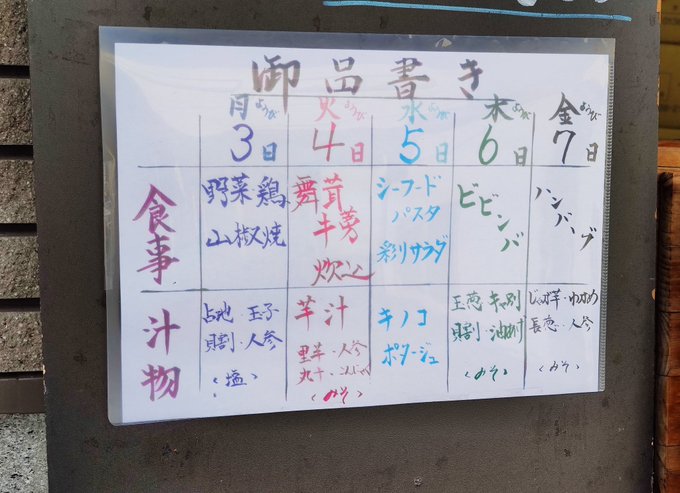 御品書き
月ようび 火ようび 水ようび 木ようび 金ようび
3日 4日 5日 6日 7日
食事
野菜・鶏
山椒焼
舞茸
牛蒡
炊込
シーフード
パスタ
彩りサラダ
ビビンバ
ハンバーグ
汁物
占地・玉子
貝割・人参
〈塩〉
芋汁
里芋・人参
丸十・こんにゃく
〈みそ〉
キノコ
ポタージュ
玉葱・キャベツ
貝割・油あげ
〈みそ〉
じゃが芋・わかめ
長葱・人参
〈みそ〉